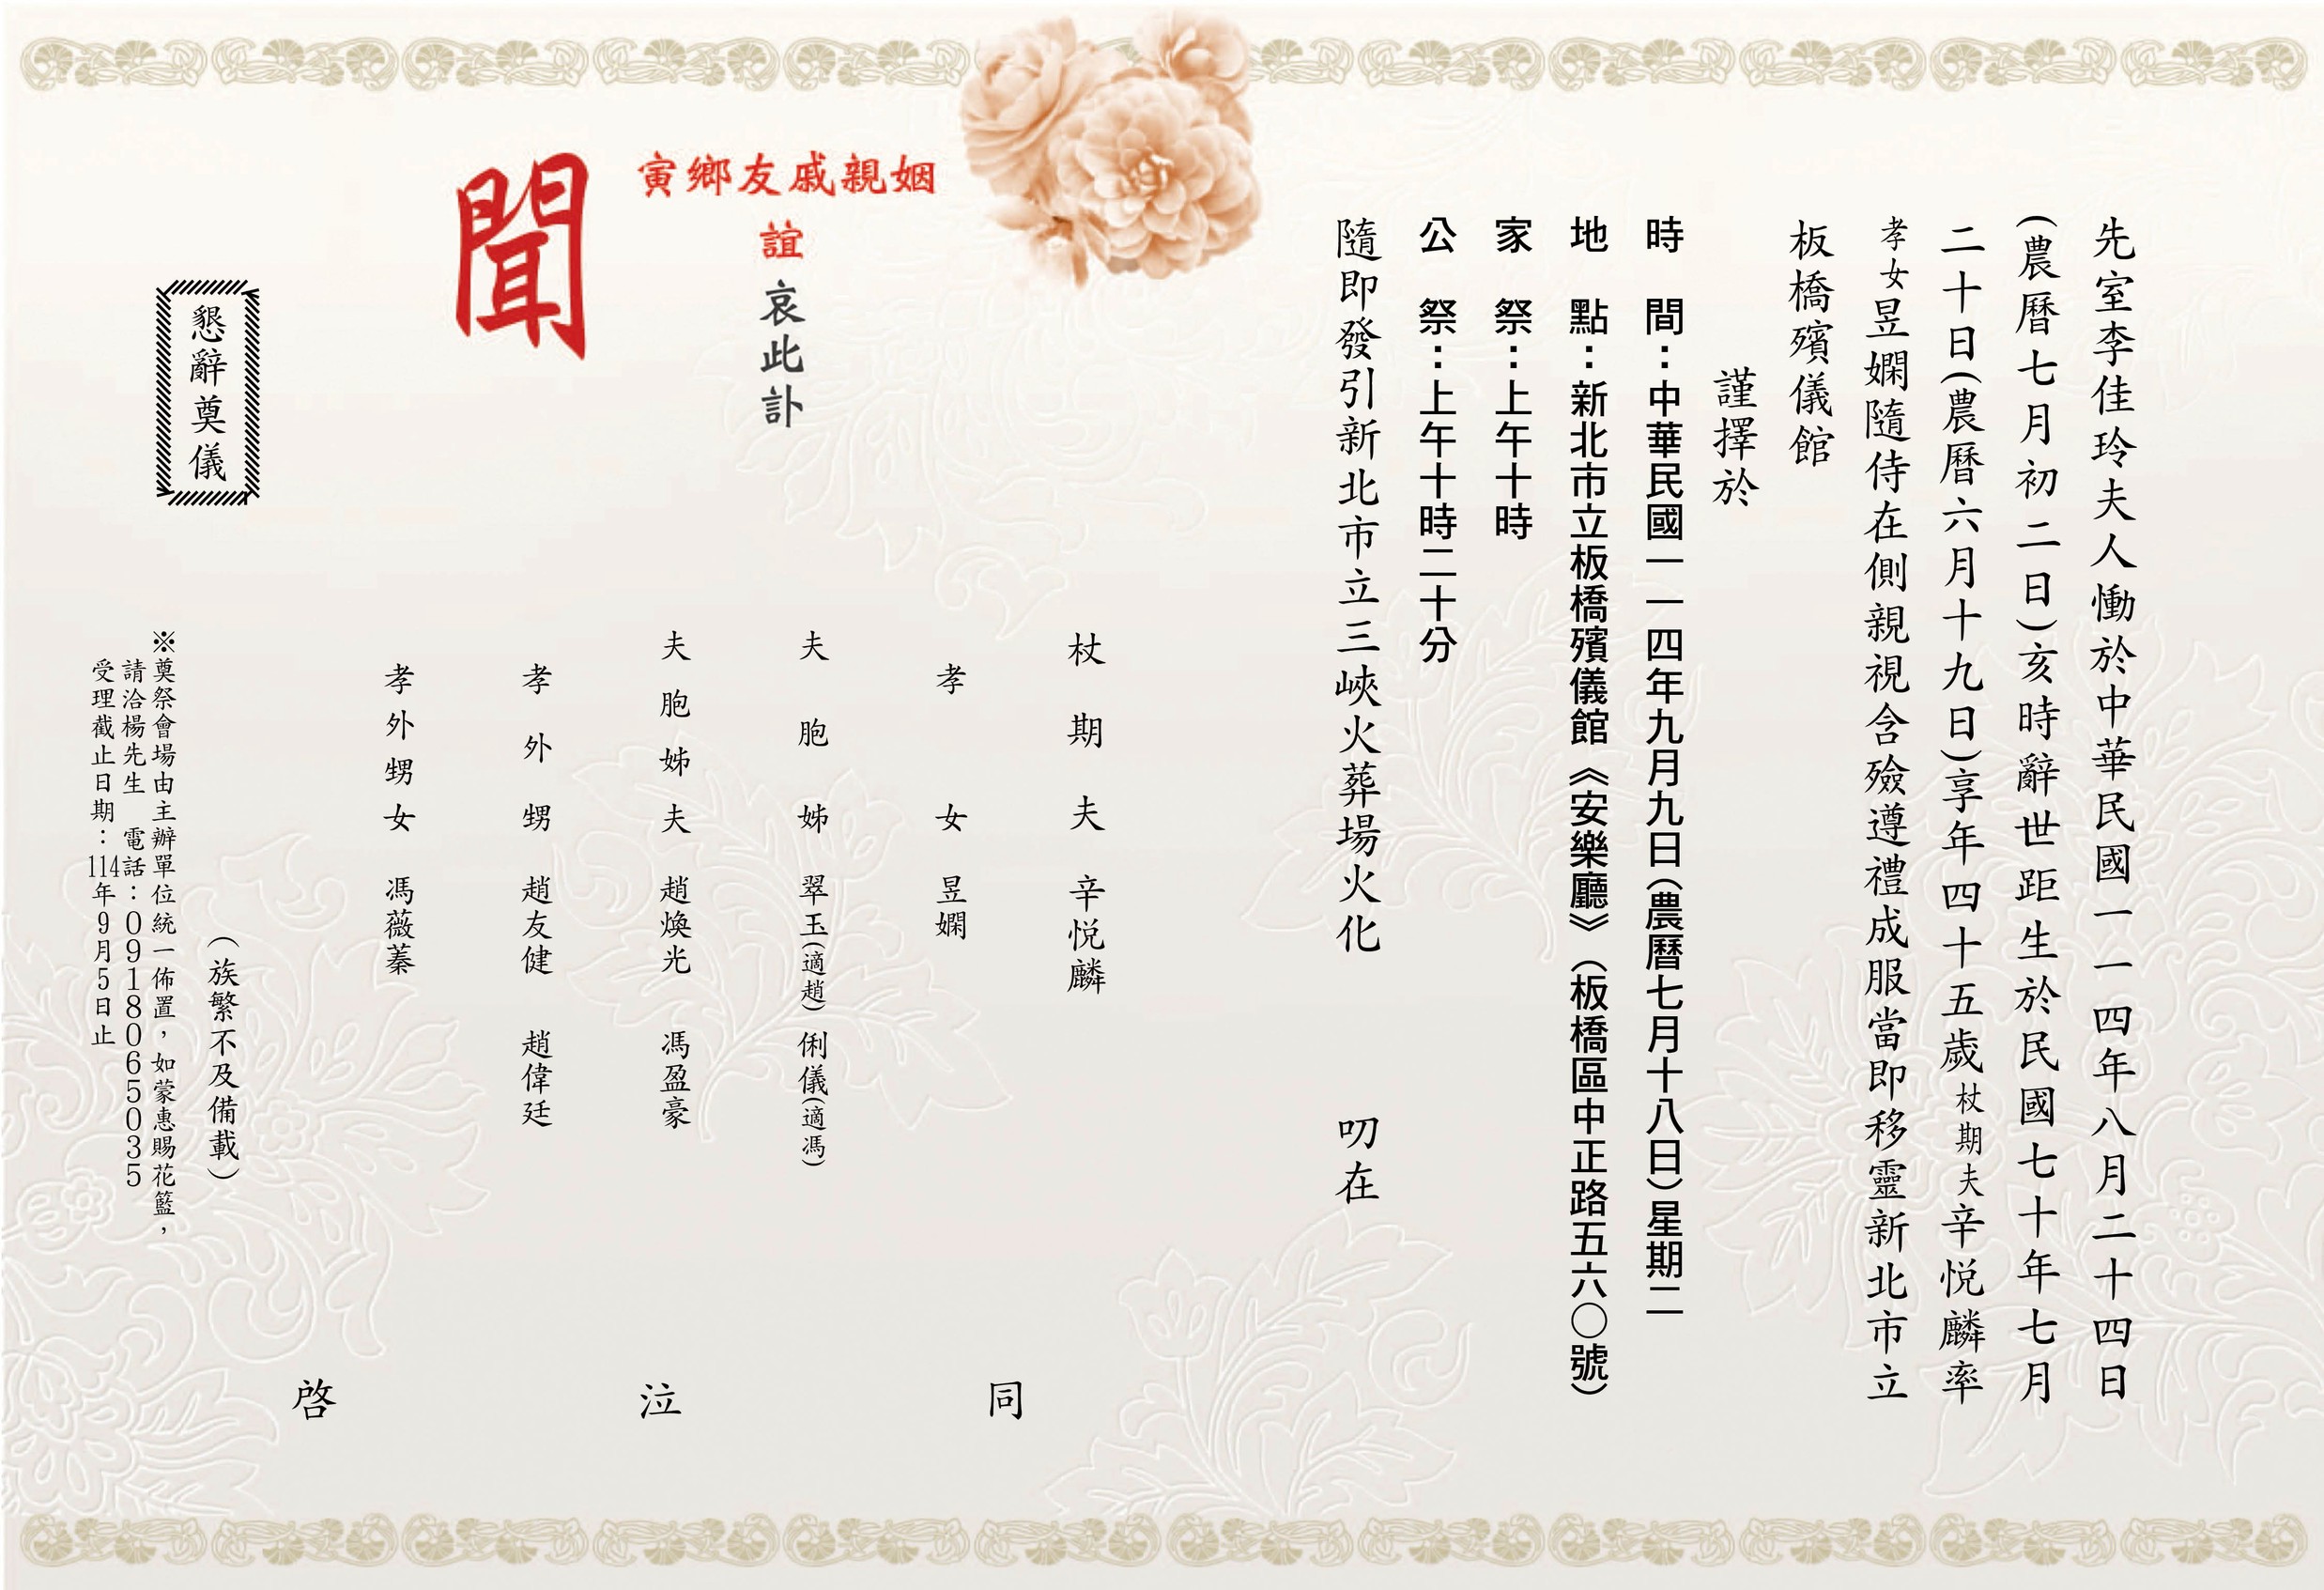 先室李佳玲夫人慟於中華民國一一四年八月二十四日
(農曆七月初二日)亥時辭世距生於民國七十年七月
二十日(農曆六月十九日)享年四十五歲杖期夫辛悅麟率
孝女昱嫻隨侍在側親視含殮遵禮成服當即移靈新北市立
板橋殯儀館
謹擇於
時 間：中華民國一一四年九月九日(農曆七月十八日)星期二
地 點：新北市立板橋殯儀館《安樂廳》(板橋區中正路五六○號)
家 祭：上午十時
公 祭：上午十時二十分
隨即發引新北市立三峽火葬場火化 叨在
姻親戚友鄉寅
誼 哀此訃
聞
杖期夫 辛悅麟
孝女 昱嫻
夫胞姊 翠玉(適趙) 俐儀(適馮)
夫胞姊夫 趙煥光 馮盈豪
孝外甥 趙友健 趙偉廷
孝外甥女 馮薇蓁
同 泣 啓
(族繁不及備載)
懇辭奠儀
※奠祭會場由主辦單位統一佈置，如蒙惠賜花籃，
請洽楊先生 電話：0918065035
受理截止日期：114年9月5日止